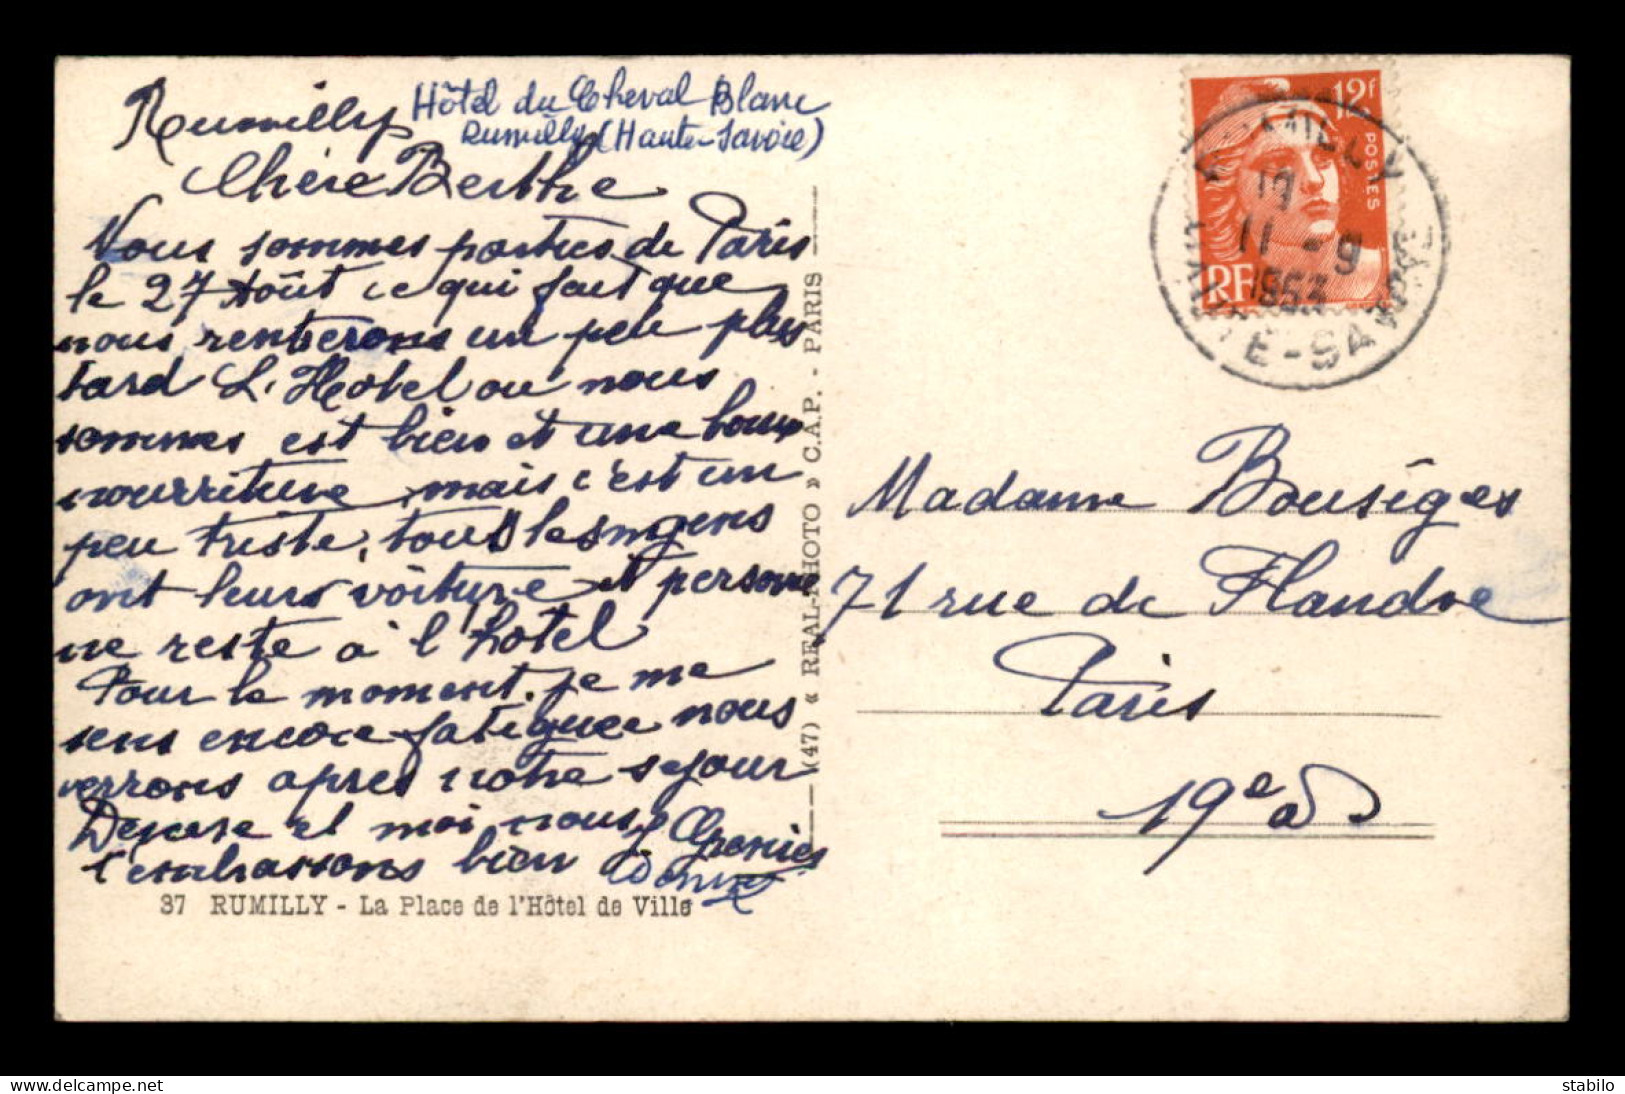 Rumilly
Hôtel du Cheval Blanc
Rumilly (Haute-Savoie)
Chère Berthe
Vous sommes parties de Paris
le 27 Aôut ce qui fait que
nous renterons un peu plus
tard L'Hotel ou nous
sommes est bien et une bonne
nourriture mais c'est un
peu triste, tous les gens
ont leurs voiture et personne
ne reste à l'hotel
Pour le moment je me
sens encore fatiguee nous
verrons apres notre sejour
et moi nous
t'embrassons bien
37 RUMILLY - La Place de l'Hôtel de Ville
(47) « REAL-PHOTO » C.A.P. - PARIS
12f
POSTES
RF
RUMILLY
17
11 - 9
1953
HTE-SAVOIE
Madame Bousiges
71 rue de Flandre
Paris
19e
delcampe.net
stabilo